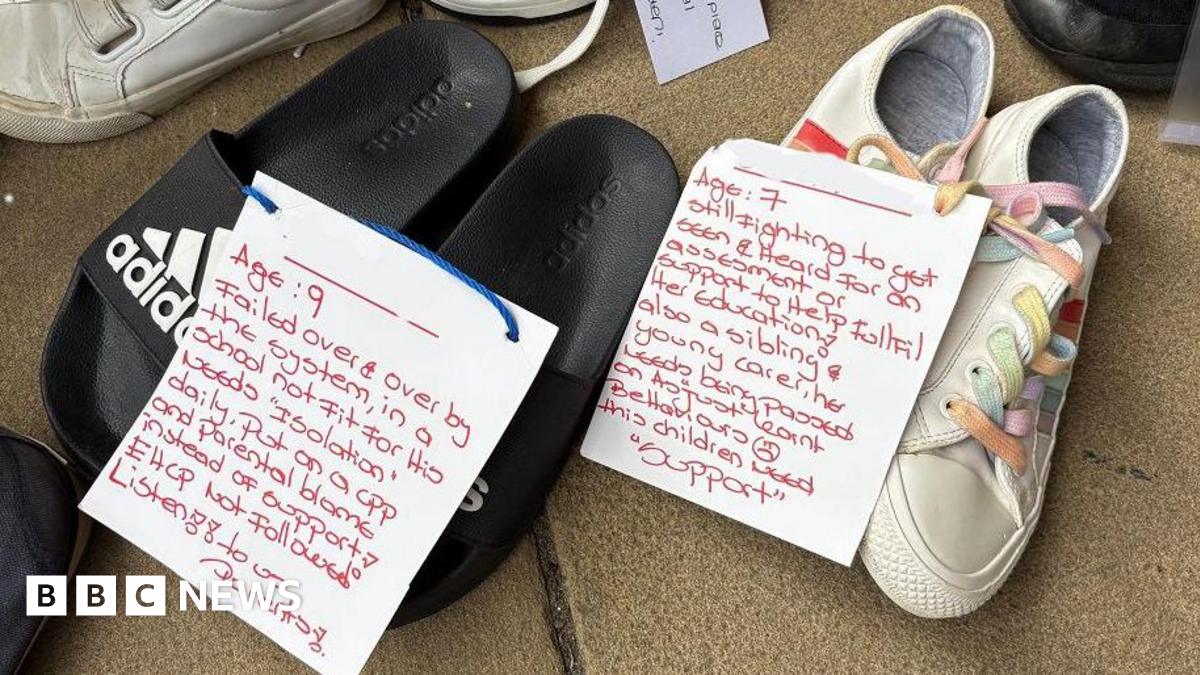 adidas
adidas
adidas
Age: 9
Failed over & over by
the system, in a
school not fit for his
needs "isolation"
daily, Put on a CPP
and Parental blame
instead of support!
EHCP Not followed
Listen!! to us
Parents!
Age: 7
still fighting to get
seen & Heard for an
assessment or
support to Help fulfil
Her education!
also a sibling &
young carer, her
needs being passed
on As "just learnt
Behaviours ☹
this children need
"Support"
BBC NEWS